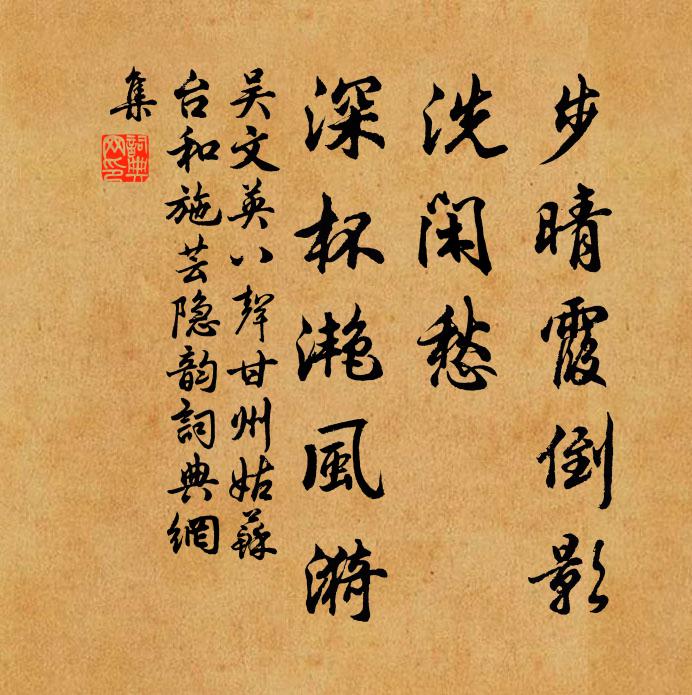 步晴霞倒影
洗闲愁
深杯滟風漪
吴文英八聲甘州姑蘇
台和施芸隐韵詞典網
集
詞典
网印